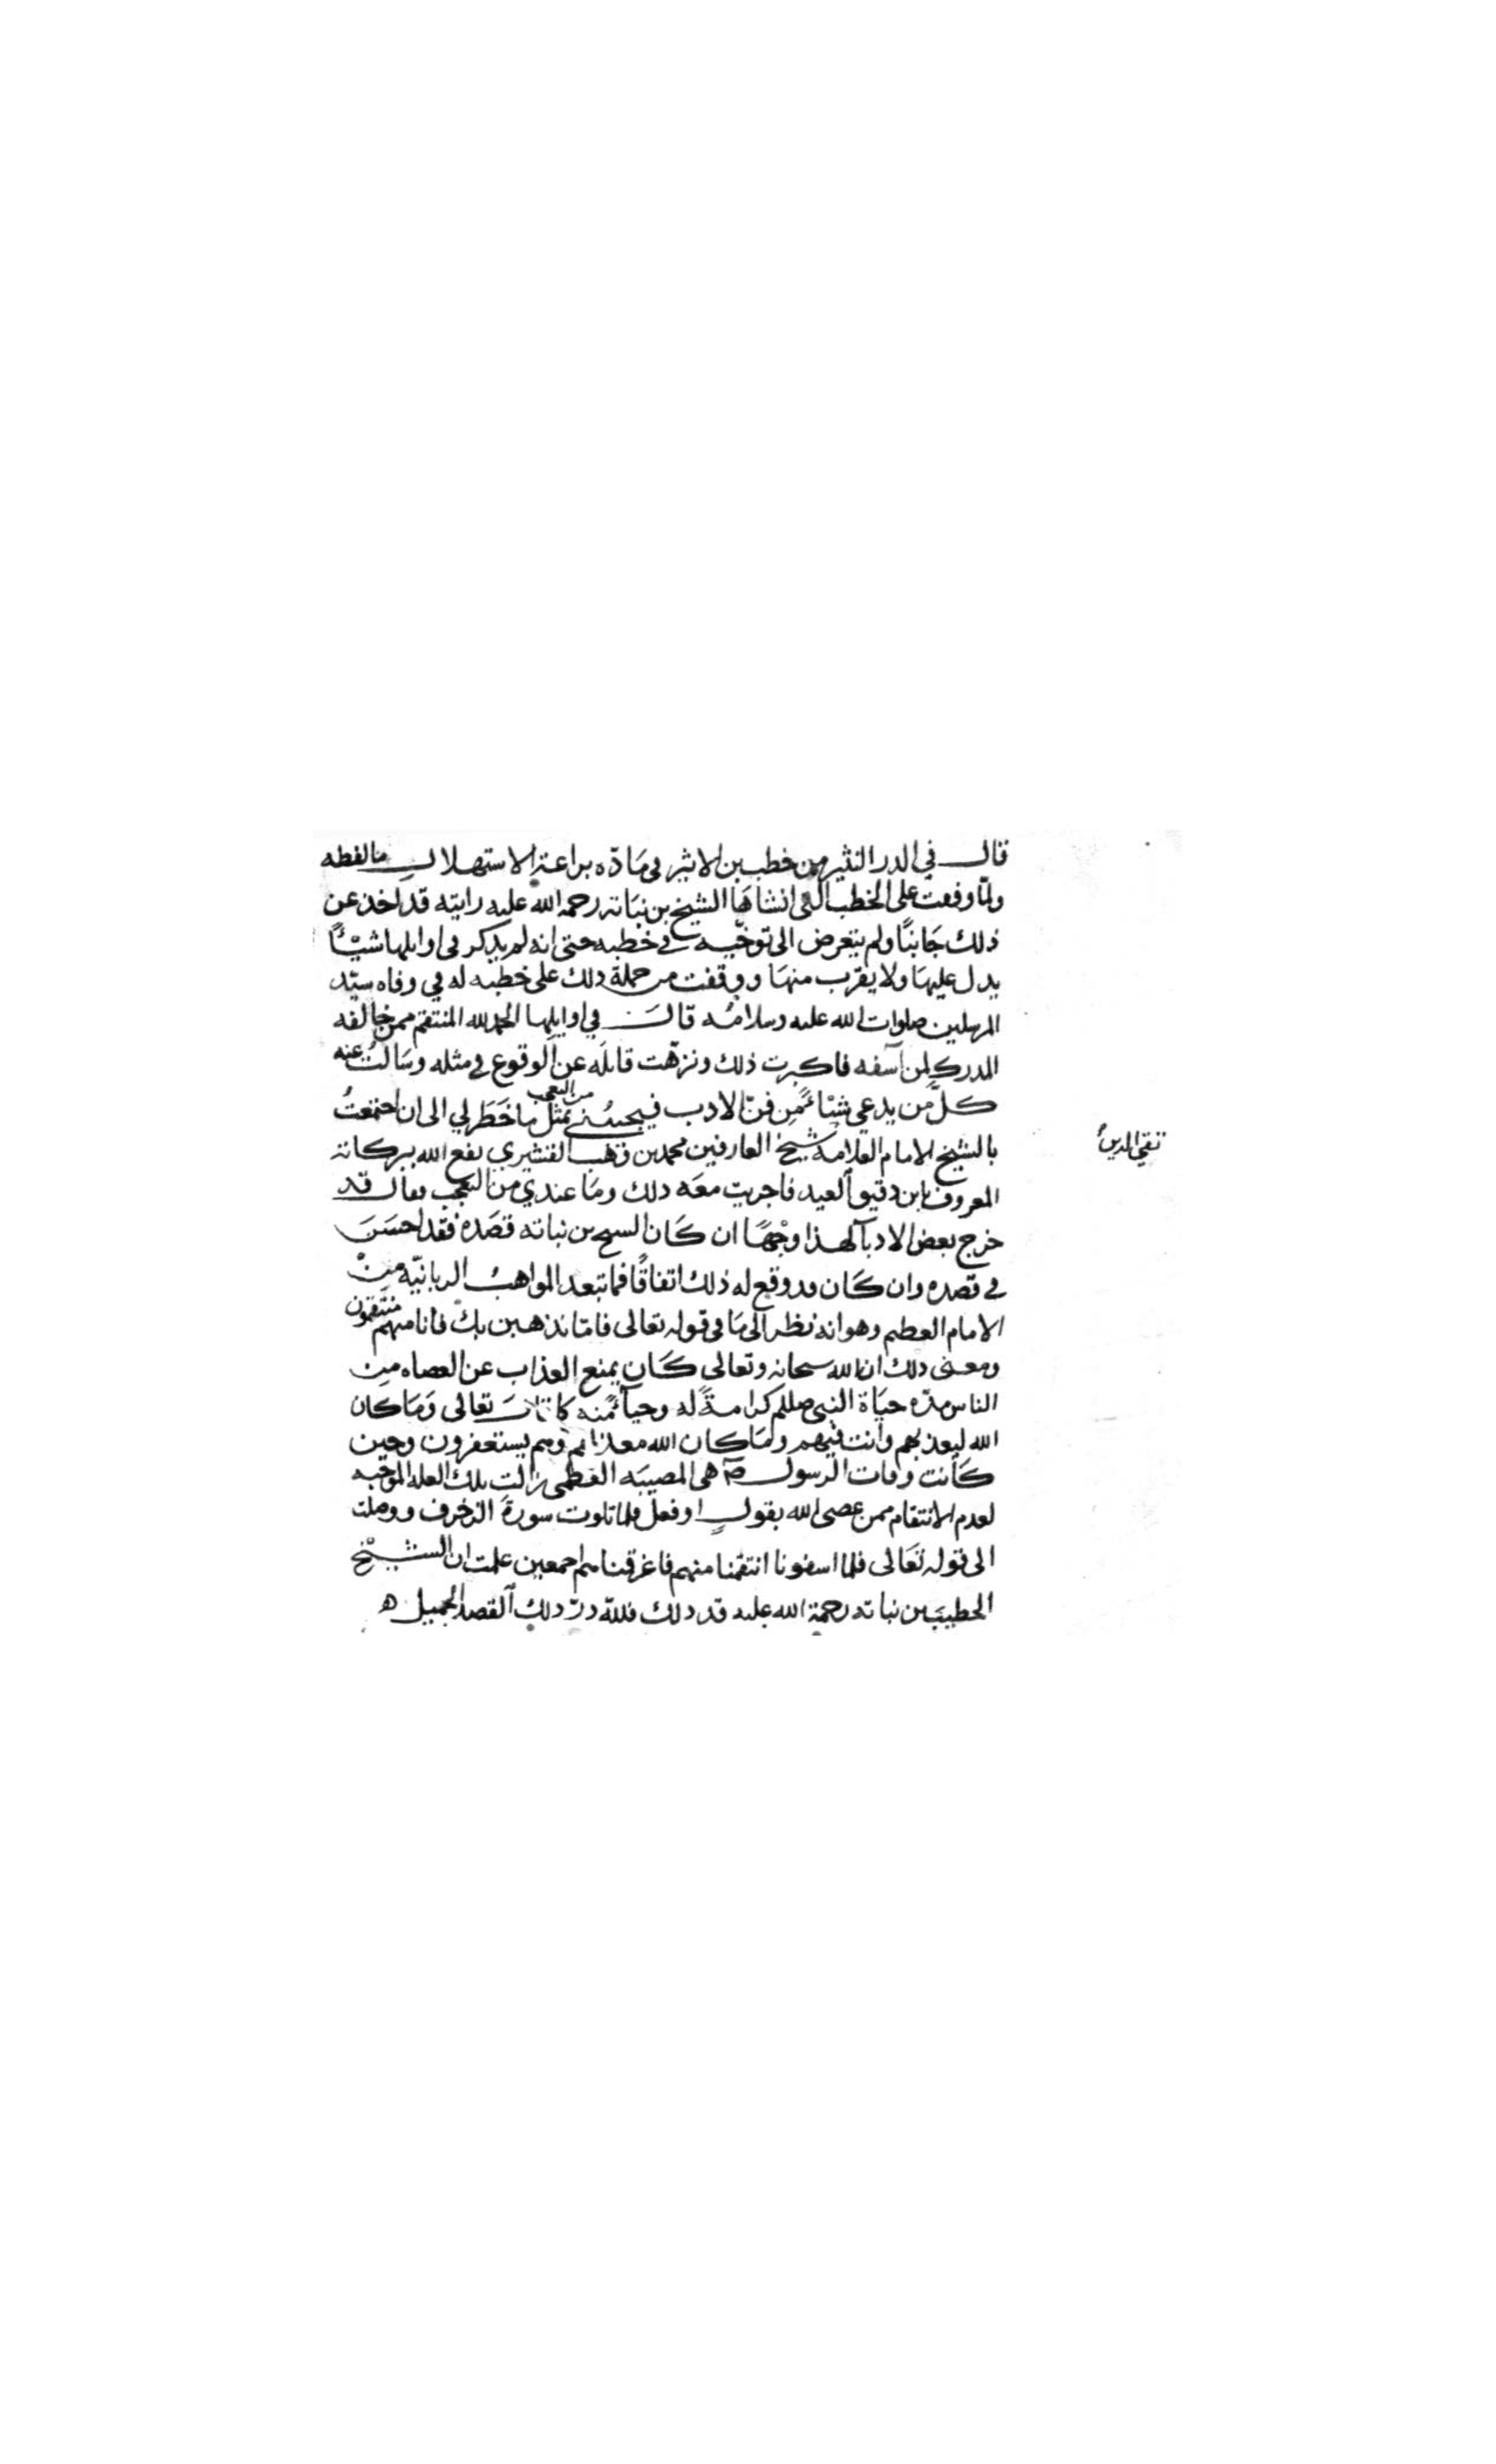 قال في الدر النثير من خطب بن الاثير في مادّه براعة الاستهلال ما لفظه
ولمّا وقفت على الخطب التي انشاها الشيخ بن نباته رحمه الله عليه رايته قد اخذ عن
ذلك جَانبًا ولم يتعرض الى توخّيه في خطبه حتى انه لم يذكر في اوايلها شيْئًا
يدل عليهَا ولا يقرب منهَا ووقفت من جملة ذلك على خطبه له في وفاه سيّد
المرسلين صلوات الله عليه وسلامُه قالَ في اوايلها الحمد لله المنتقم ممن خالفه
المدرك لمن آسفه فاكبرت ذلك ونزّهت قائلَه عن الوقوع في مثله وسَالتُ عنه
كلَّ مَن يدعي شيْاءً مِن فنّ الادب فيجيبُني بمثْل ما خَطَر لي من التعجب الى ان اجتمعتُ
بالشيخ الامام العلامة شيخ العارفين محمد بن وهب القشيري نفع الله ببركاته
تقي الدين
المعروف بابن دقيق العيد فاجريت معَه ذلك ومَا عندي من التعجب فقال قد
خرج بعض الادبآ لهذا وجْهًا ان كَان الشيخ بن نباته قصَدَه فقد احسَنَ
في قصده وان كَان قد وقع له ذلك اتفاقًا فما تبعد المواهبُ الربانيّه مِنْ
الامام العظيم وهو انه نظر الى مَا في قوله تعالى فامّا نذهبن بك فانا منهم منتقمون
ومعنى ذلك ان الله سبحانه وتعالى كَان يمنع العذاب عن العصاه من
الناس مدّه حيَاة النبي صللم كرامةً له وحيآءً منه كما قالَ تعالى وَمَا كان
الله ليعذبهم وانت فيهم ومَا كان الله معذبهم وهم يستغفرون وحين
كَانت وفات الرسول صلم هي المصيبَه العظمى زالت تلك العله الموجبه
لعدم الانتقام ممن عصى الله بقولٍ او فعل فلما تلوت سورةَ الزخرف ووصلت
الى قوله تعَالى فلما اسفونا انتقمنا منهم فاغرقناهم اجمعين علمت ان الشيْخ
الخطيبَ بن نباته رحمة الله عليه قصد ذلك فللّه درّ ذلك القصد الجميل ه